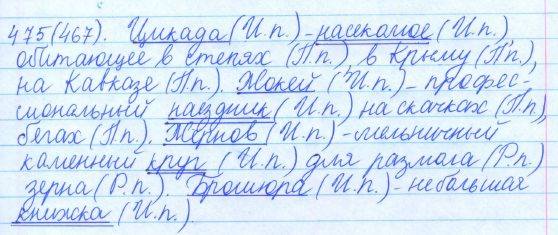 475(467). Цикада (И.п.) - насекомое (И.п.)
обитающее в степях (П.п.), в Крыму (П.п.),
на Кавказе (П.п.). Жокей (И.п.) - профес-
сиональный наездник (И.п.) на скачках (П.п.),
бегах (П.п.). Жернов (И.п.) - мельничный
каменный круг (И.п.) для размола (Р.п.)
зерна (Р.п.). Брошюра (И.п.) - небольшая
книжка (И.п.)